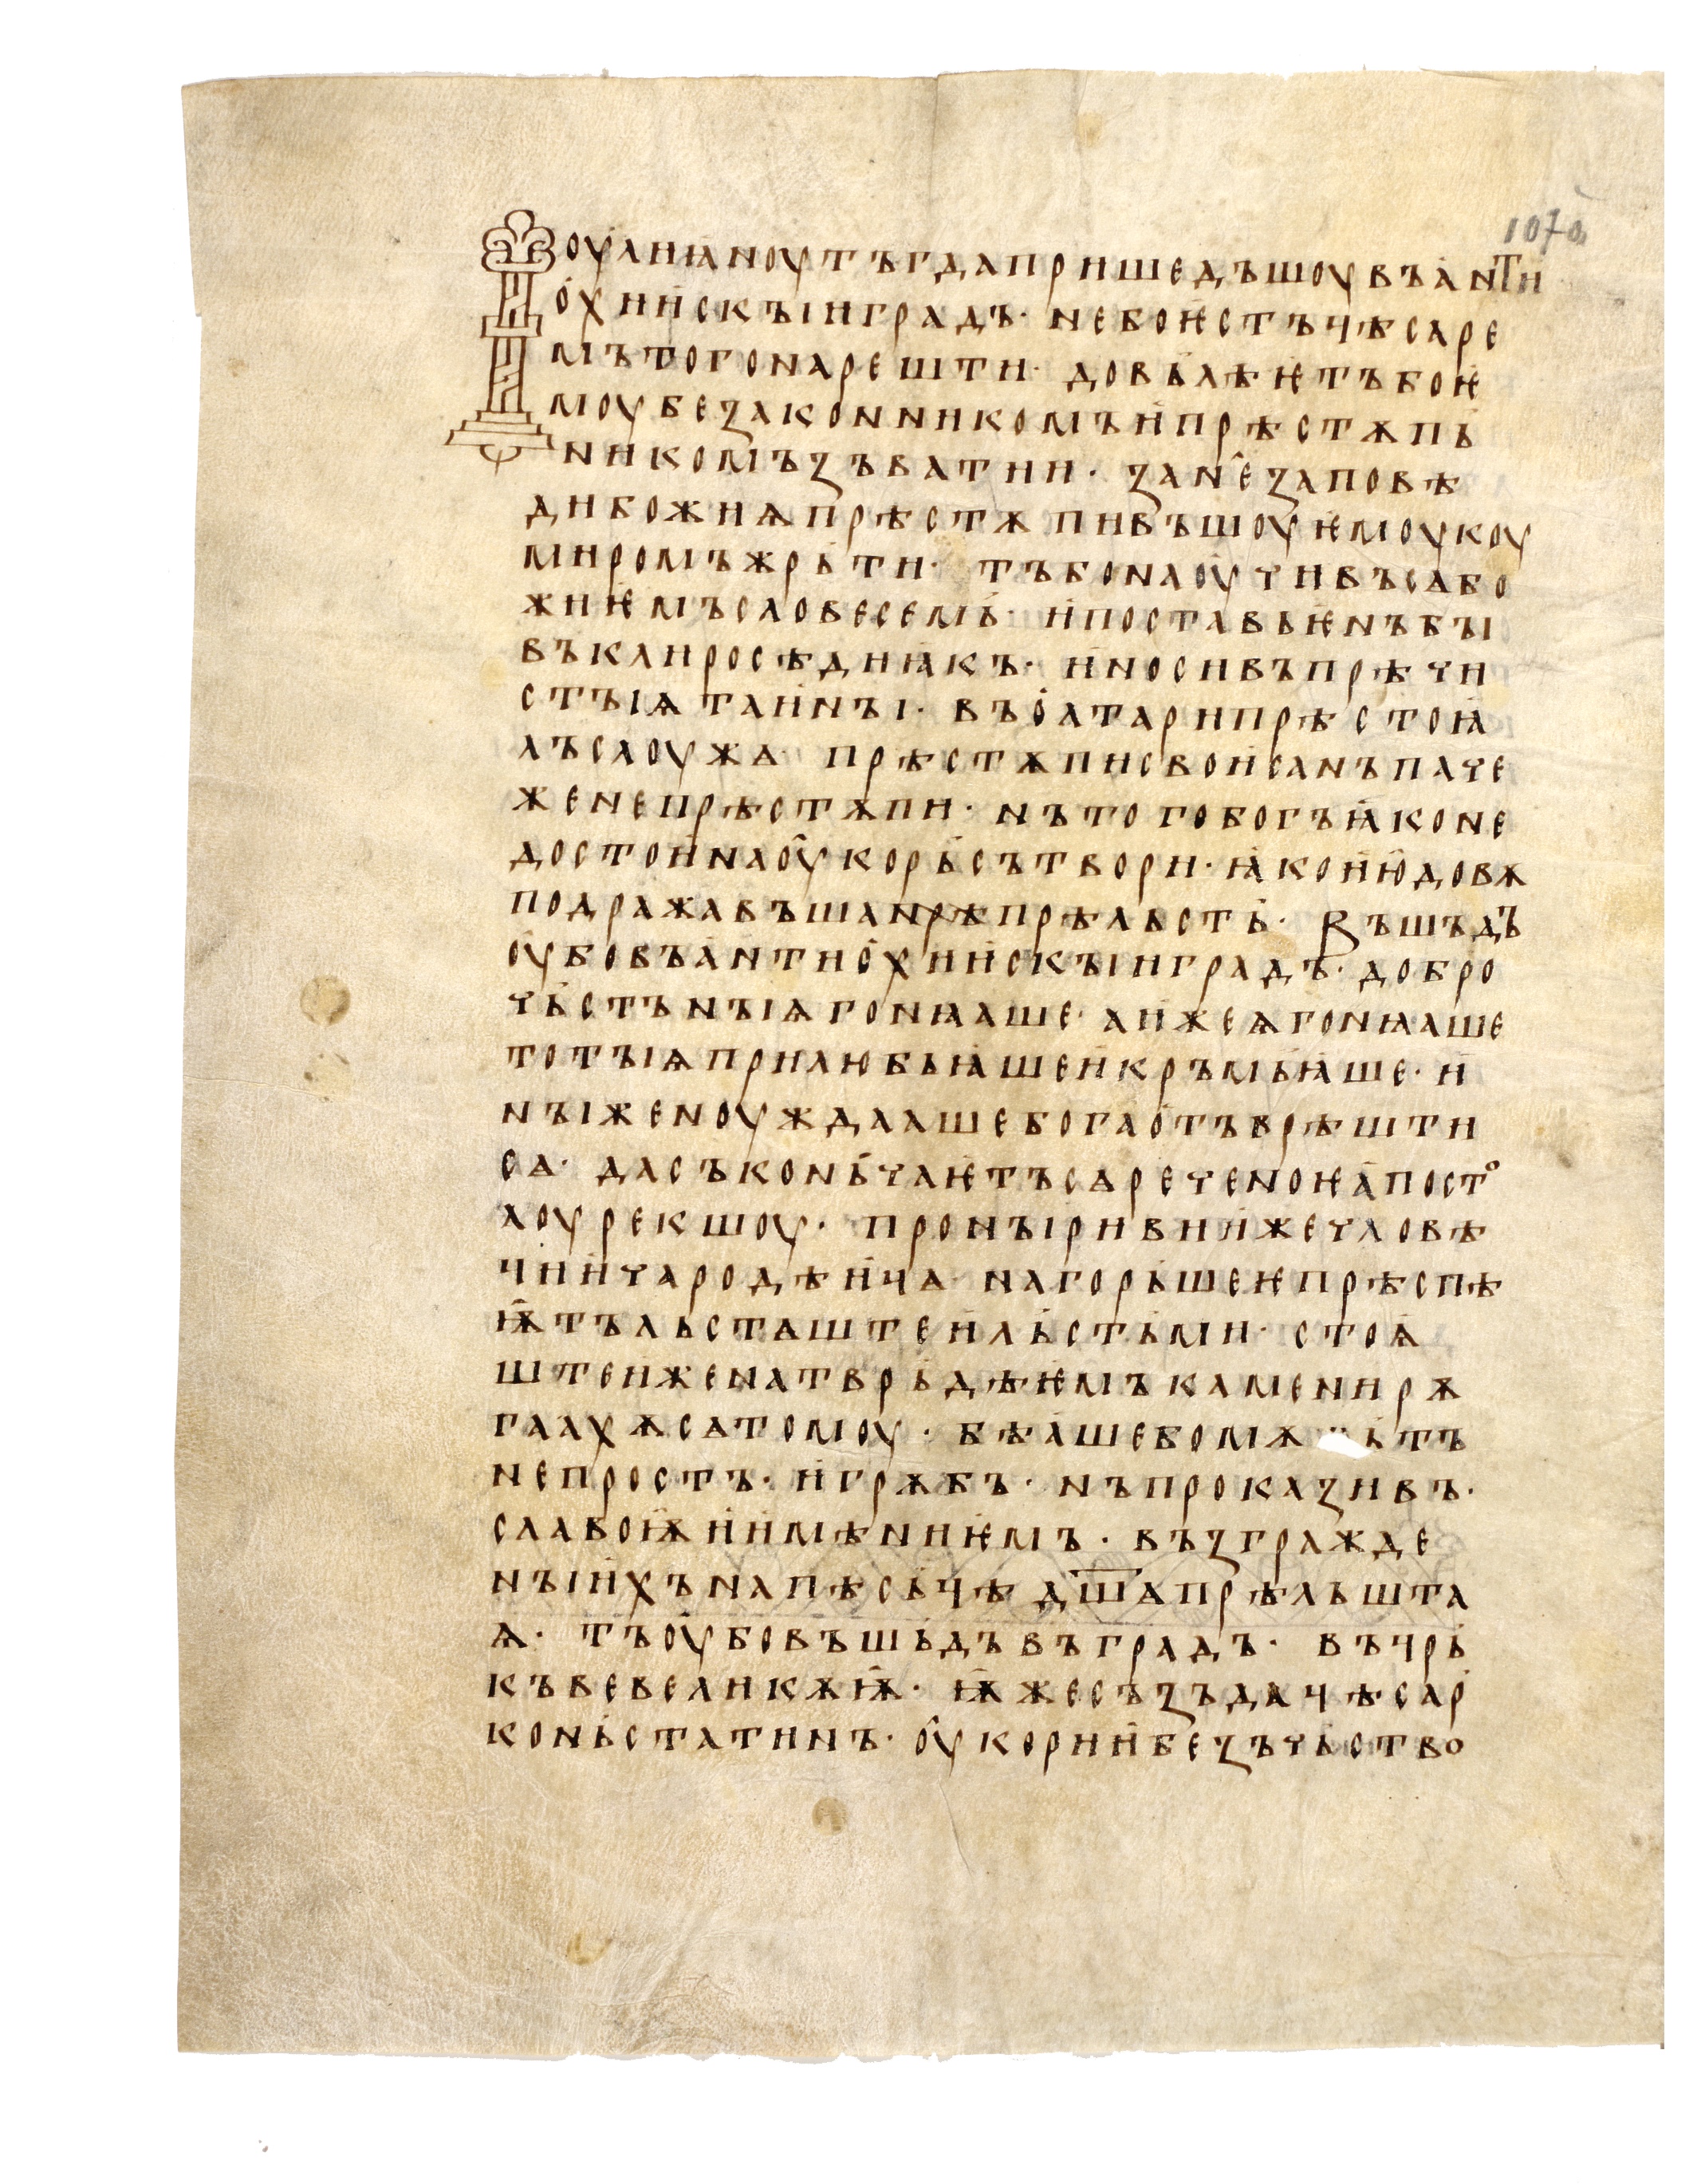 107а
Іоулиꙗноу тъгда пришедъшоу въ анти
охиискꙑи градъ· не боѥстъ чѣсаре
мъ того нарешти· довьлѣѥтъ бо ѥ
моу безаконникомъ и прѣстѫпь
никомъ зъватии· зан̂е заповѣ
ди божиѩ прѣстѫпивъшоу ѥмоу коу
миромъ жрьти· тъ бо наоучивъсѧ бо
жиѥмъ словесемь· и поставьѥнъ бꙑ
въ клиросѣ диꙗкъ· и носивъ прѣчи
стꙑѩ таинꙑ· въ олтари прѣстоꙗ
лъ слоужѧ прѣстѫпи свои санъ паче
же не прѣстѫпи· нъ того богъ ꙗко не
достоина оукорь сътвори· ꙗко июдовѫ
подражавъша нрѣ прѣльсть· Въшъдъ
оубо въ антиохиискꙑи градъ· добро
чьстънꙑѩ гонꙗаше· а иже ѧ гонꙗаше
то тꙑѩ прилюбьꙗше и кръмьꙗше· и
нꙑ же ноуждааше бога отъврѣшти
сѧ· да съконьчаѥтъсѧ реченоѥ апосто
лоу рекшоу· пронꙑриви иже чловѣ
чии чародѣичѧ на горьшеѥ прѣспѣ
ѭтъ льстѧште и льстьми· стоѩ
штеи же на тврьдѣѥмъ камени рѫ
гаахѫсѧ томоу· бѣаше бо мѫчьтъ
не простъ· и грѫбъ· нъ проказивъ·
славоѭ и имѣниѥмъ· възгражде
нꙑихъ на пѣсъчѣ дш҃ѧ прѣльшта
ѩ· тъ оубо въшьдъ въ градъ· въ чрь
къве великѫѭ· ѭже съзъда чѣсар
коньстатинъ· оукори и безъчьство